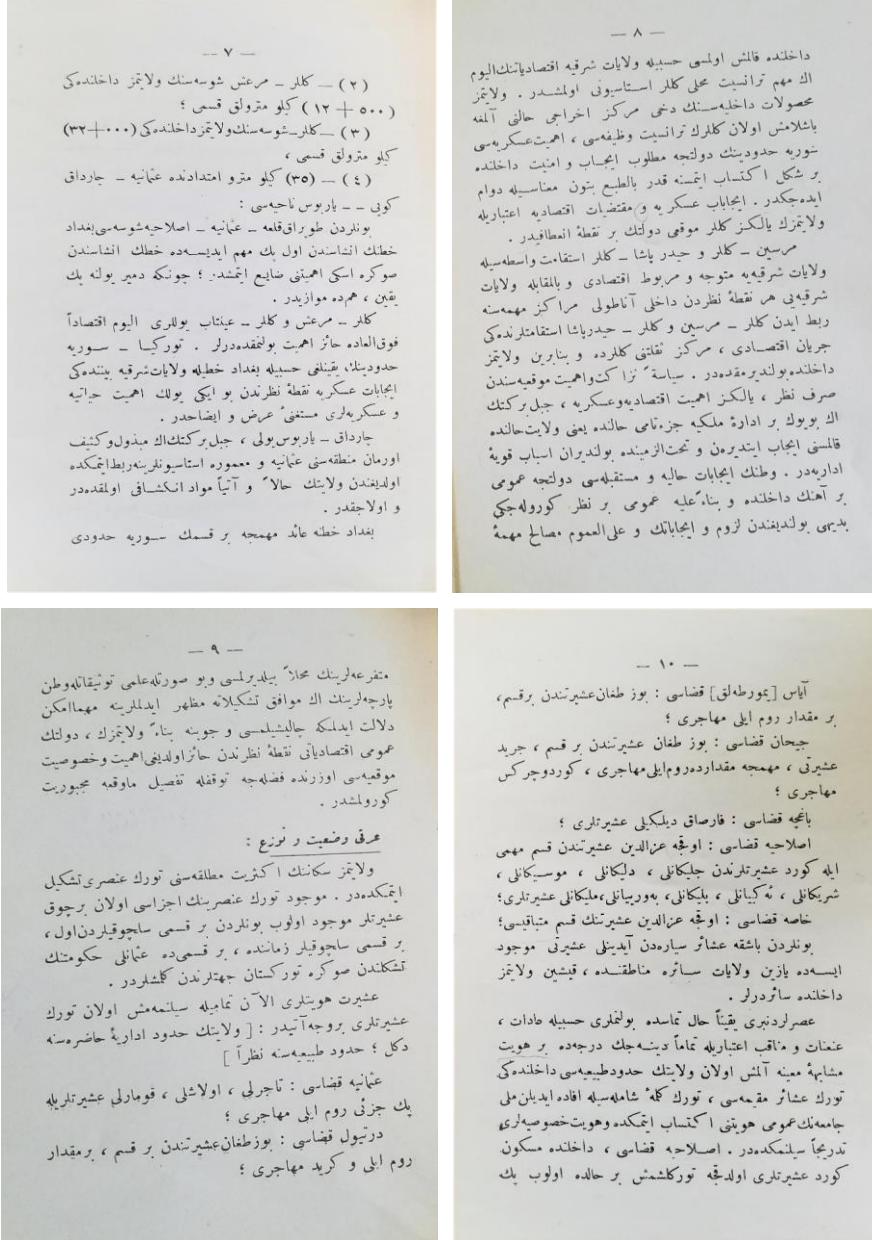 — ٧ —
( ٢ ) — كللر — مرعش شوسه سنك ولايتمز داخلنده كى
( ٥٠٠ + ١٢ ) كيلو مترولق قسمى ؛
( ٣ ) — كللر — شوسه سنك ولايتمز داخلنده كى ( ٠٠٠+٣٢)
كيلو مترولق قسمى ،
( ٤ ) — (٣٥) كيلو مترو امتدادنده عثمانيه — چارداق
كوپى — — ياربوس ناحيه سى :
بونلردن طوپراق قلعه — عثمانيه — اصلاحيه شوسه سى بغداد
خطنك انشاسندن اول پك مهم ايديسه ده خطك انشاسندن
صوكره اسكى اهميتنى ضايع ايتمشدر ؛ چونكه دمير يولنه پك
يقين ، هم ده موازيدر .
كللر — مرعش و كللر — عينتاب يوللرى اليوم اقتصاداً
فوق العاده حائز اهميت بولنمقده درلر . توركيا — سوريه
حدودينك يقينلغى حسبيله بغداد خطيله ولايات شرقيه بيننده كى
ايجابات عسكريه نقطهٔ نظرندن بو ايكى يولك اهميت حياتيه
و عسكريه لرى مستغنئ عرض و ايضاحدر .
چارداق — ياربوس يولى ، جبل بركتك اك مبذول و كثيف
اورمان منطقه سنى عثمانيه و معموره استاسيونلرينه ربط ايتمكده
اولديغندن ولايتك حالاً و آتياً مواد انكشافى اولمقده در
و اولاجقدر .
بغداد خطنه عائد مهمجه بر قسمك سوريه حدودى
— ٨ —
داخلنده قالمش اولمسى حسبيله ولايات شرقيه اقتصادياتنك اليوم
اك مهم ترانسيت محلى كللر استاسيونى اولمشدر . ولايتمز
محصولات داخليه سنك دخى مركز اخراجى حالنى آلمغه
باشلامش اولان كللرك ترانسيت وظيفه سى ، اهميت عسكريه سى
سوريه حدودينك دولتجه مطلوب ايجاب و امنيت داخلنده
بر شكل اكتساب ايتمسنه قدر بالطبع بتون معناسيله دوام
ايده جكدر . ايجابات عسكريه و مقتضيات اقتصاديه اعتباريله
ولايتمزك يالكز كللر موقعى دولتك بر نقطهٔ انعطافيدر .
مرسين — كللر و حيدر پاشا — كللر استقامت واسطه سيله
ولايات شرقيه يه متوجه و مربوط اقتصادى و بالمقابله ولايات
شرقيه يى هر نقطهٔ نظردن داخلى آناطولى مراكز مهمه سنه
ربط ايدن كللر — مرسين و كللر — حيدرپاشا استقامتلرنده كى
جريان اقتصادى ، مركز ثقلتنى كللرده و بنابرين ولايتمز
داخلنده بولنديرمقده در . سياسةً نزاكت و اهميت موقعيه سندن
صرف نظر ، يالكز اهميت اقتصاديه و عسكريه ، جبل بركتك
اك بويوك بر ادارهٔ ملكيه جزء تامى حالنده يعنى ولايت حالنده
قالمسنى ايجاب ايتديرەن و تحت الزمينده بولنديران اسباب قويهٔ
اداريه در . وطنك ايجابات حاليه و مستقبله سى دولتجه عمومى
بر آهنك داخلنده و بناءً عليه عمومى بر نظر كوروله جكى
بديهى بولنديغندن لزوم و ايجاباتك و على العموم مصالح مهمهٔ
— ٩ —
متفرعه لرينك محلاً بيلديرلمسى وبو صورتله علمى توثيقاتله وطن
پارچه لرينك اك موافق تشكيلاته مظهر ايدلملرينه مهما امكن
دلالت ايدلمكه چاليشيلمسى و جوبنه بناءً ولايتمزك ، دولتك
عمومى اقتصادياتى نقطهٔ نظرندن حائز اولديغى اهميت وخصوصيت
موقعيه سى اوزرنده فضله جه توقفله تفصيل ماوقعه مجبوريت
كورولمشدر .
عرقى وضعيت و توزع :
ولايتمز سكاننك اكثريت مطلقه سنى تورك عنصرى تشكيل
ايتمكده در . موجود تورك عنصرينك اجزاسى اولان برچوق
عشيرتلر موجود اولوب بونلردن بر قسمى سلچوقيلردن اول ،
بر قسمى سلچوقيلر زماننده ، بر قسمى ده عثمانلى حكومتنك
تشكلندن صوكره توركستان جهتلرندن كلمشلردر .
عشيرت هويتلرى الآن تماميله سيلنمه مش اولان تورك
عشيرتلرى بروجه آتيدر : [ ولايتك حدود اداريهٔ حاضره سنه
دكل ؛ حدود طبيعيه سنه نظراً ]
عثمانيه قضاسى : تاجرلى ، اولاشلى ، قومارلى عشيرتلريله
پك جزئى روم ايلى مهاجرى ؛
درتيول قضاسى : بوز طغان عشيرتندن بر قسم ، بر مقدار
روم ايلى و كريد مهاجرى ؛
— ١٠ —
آياس [يمورطه لق] قضاسى : بوز طغان عشيرتندن برقسم ،
بر مقدار روم ايلى مهاجرى ؛
جيحان قضاسى : بوز طغان عشيرتندن بر قسم ، جريد
عشيرتى ، مهمجه مقدارده روم ايلى مهاجرى ، كورد وچركس
مهاجرى ؛
باغچه قضاسى : فارصاق ديلكيلى عشيرتلرى ؛
اصلاحيه قضاسى : اوقجه عزالدين عشيرتندن قسم مهمى
ايله كورد عشيرتلرندن جليكانلى ، دليكانلى ، موسيكانلى ،
شريكانلى ، نه كپيانلى ، بليكانلى ، به ورپيانلى ، مليكانلى عشيرتلرى ؛
خاصه قضاسى : اوقجه عزالدين عشيرتنك قسم متباقيسى ؛
بونلردن باشقه عشائر سياره دن آيدينلى عشيرتى موجود
ايسه ده يازين ولايات سائره مناطقنده ، قيشين ولايتمز
داخلنده سائردرلر .
عصرلردنبرى يقيناً حال تماسده بولنملرى حسبيله عادات ،
عنعنات و مناقب اعتباريله تماماً دينه جك درجه ده بر هويت
مشابههٔ معينه آلمش اولان ولايتك حدود طبيعيه سى داخلنده كى
تورك عشائر مقيمه سى ، تورك كلمهٔ شامله سيله افاده ايديلن ملى
جامعه نك عمومى هويتنى اكتساب ايتمكده وهويت خصوصيه لرى
تدريجاً سيلنمكده در . اصلاحيه قضاسى ، داخلنده مسكون
كورد عشيرتلرى اولدقجه توركلشمش بر حالده اولوب پك